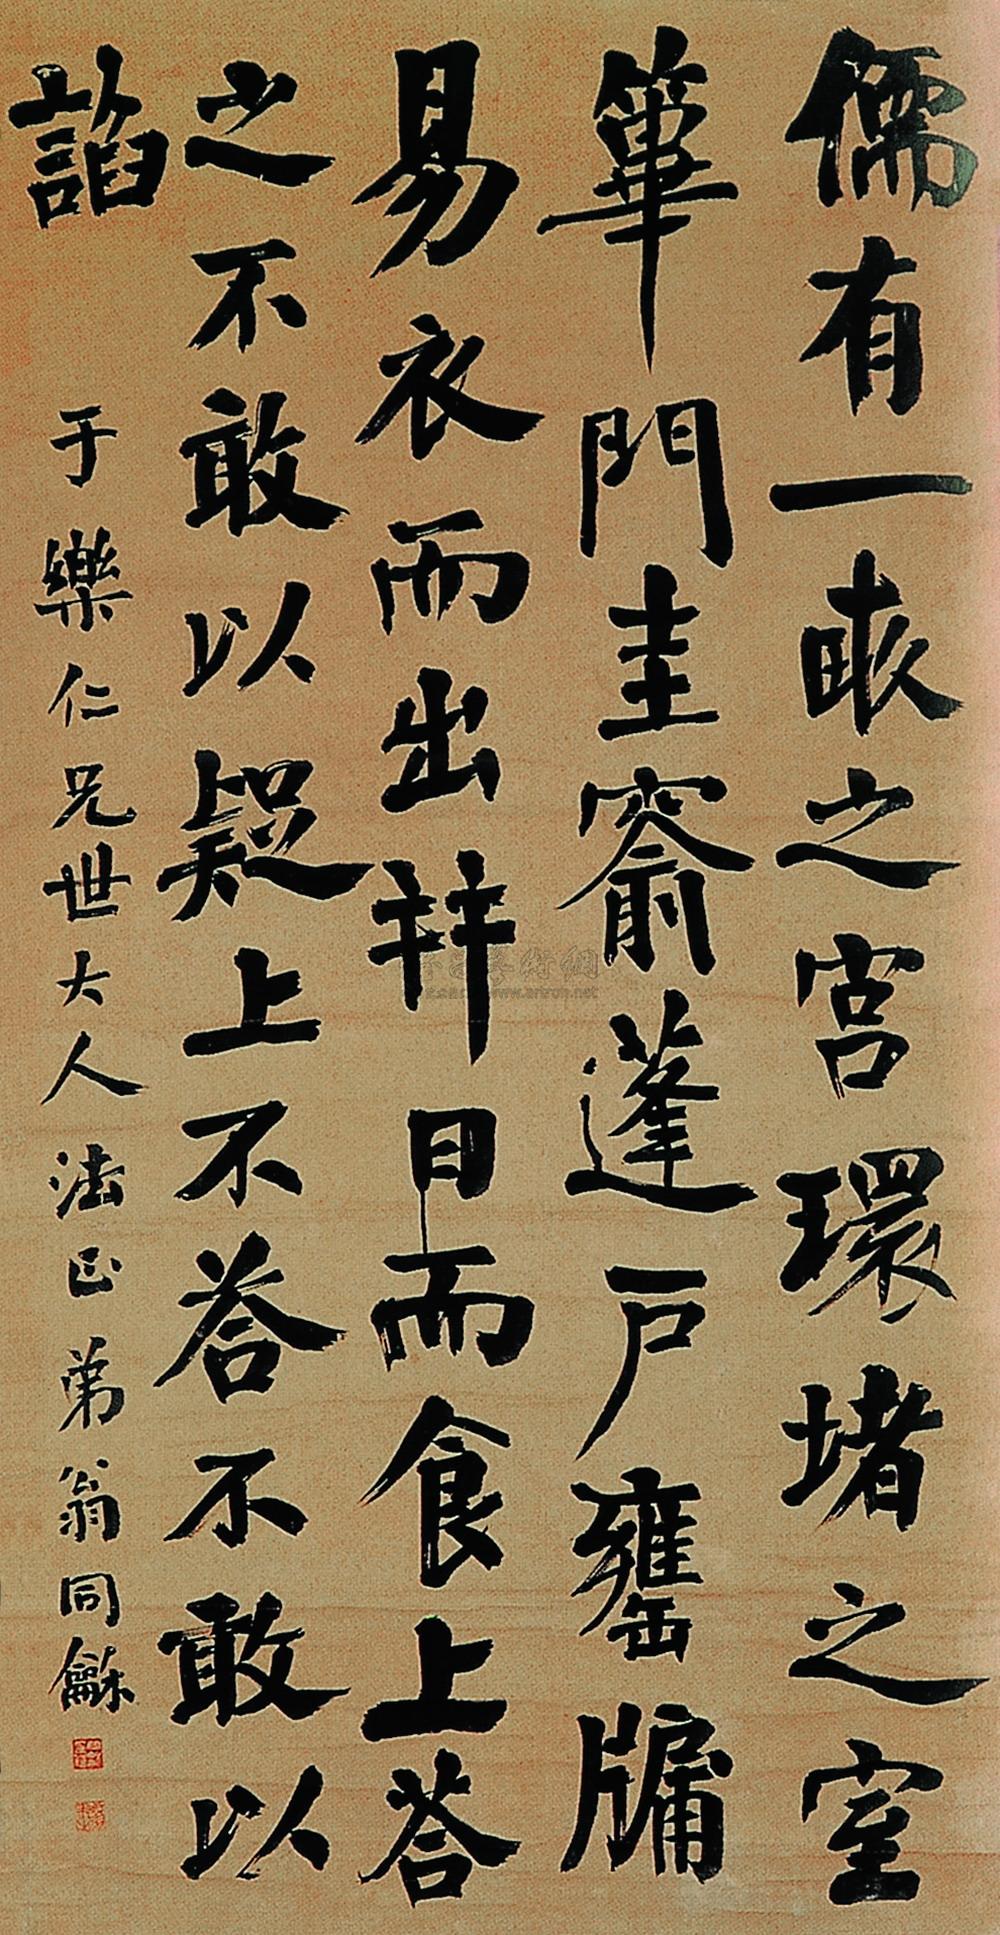 儒有一畝之宮環堵之室
篳門圭窬蓬戶甕牖
易衣而出并日而食上答
之不敢以疑上不答不敢以
諂
于樂仁兄世大人法正弟翁同龢